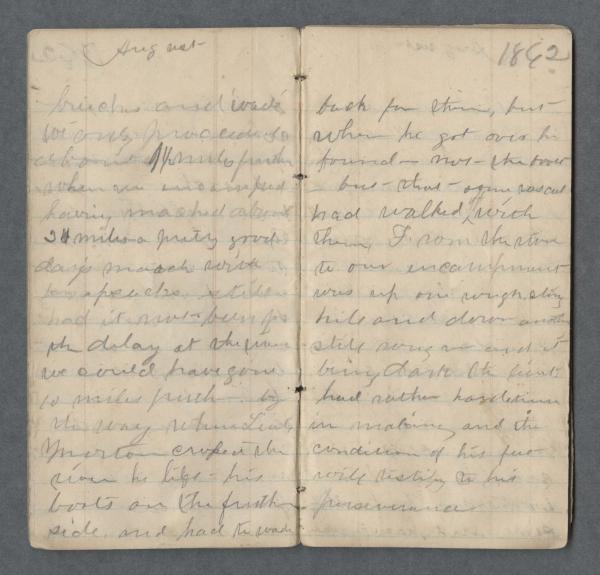 August
breeches and wade
we only proceeded
about 1½ miles further
when we encamped
having marched about
24 miles a pretty good
days march with
knapsacks,
had it not been for
the delay at the river
we could have gone
10 miles further by
the way when Lieut
Morton crossed the
river he left his
boots on the further
side, and had to wade
1862
back for them, but
when he got over he
found not the boots
but that some rascal
had walked off with
them, From the river
to our encampment
was up one rough stony
hill and down another
still rougher and it
being dark the Lieut
had rather hard time
in making, and the
condition of his feet
will testify to his
perseverance